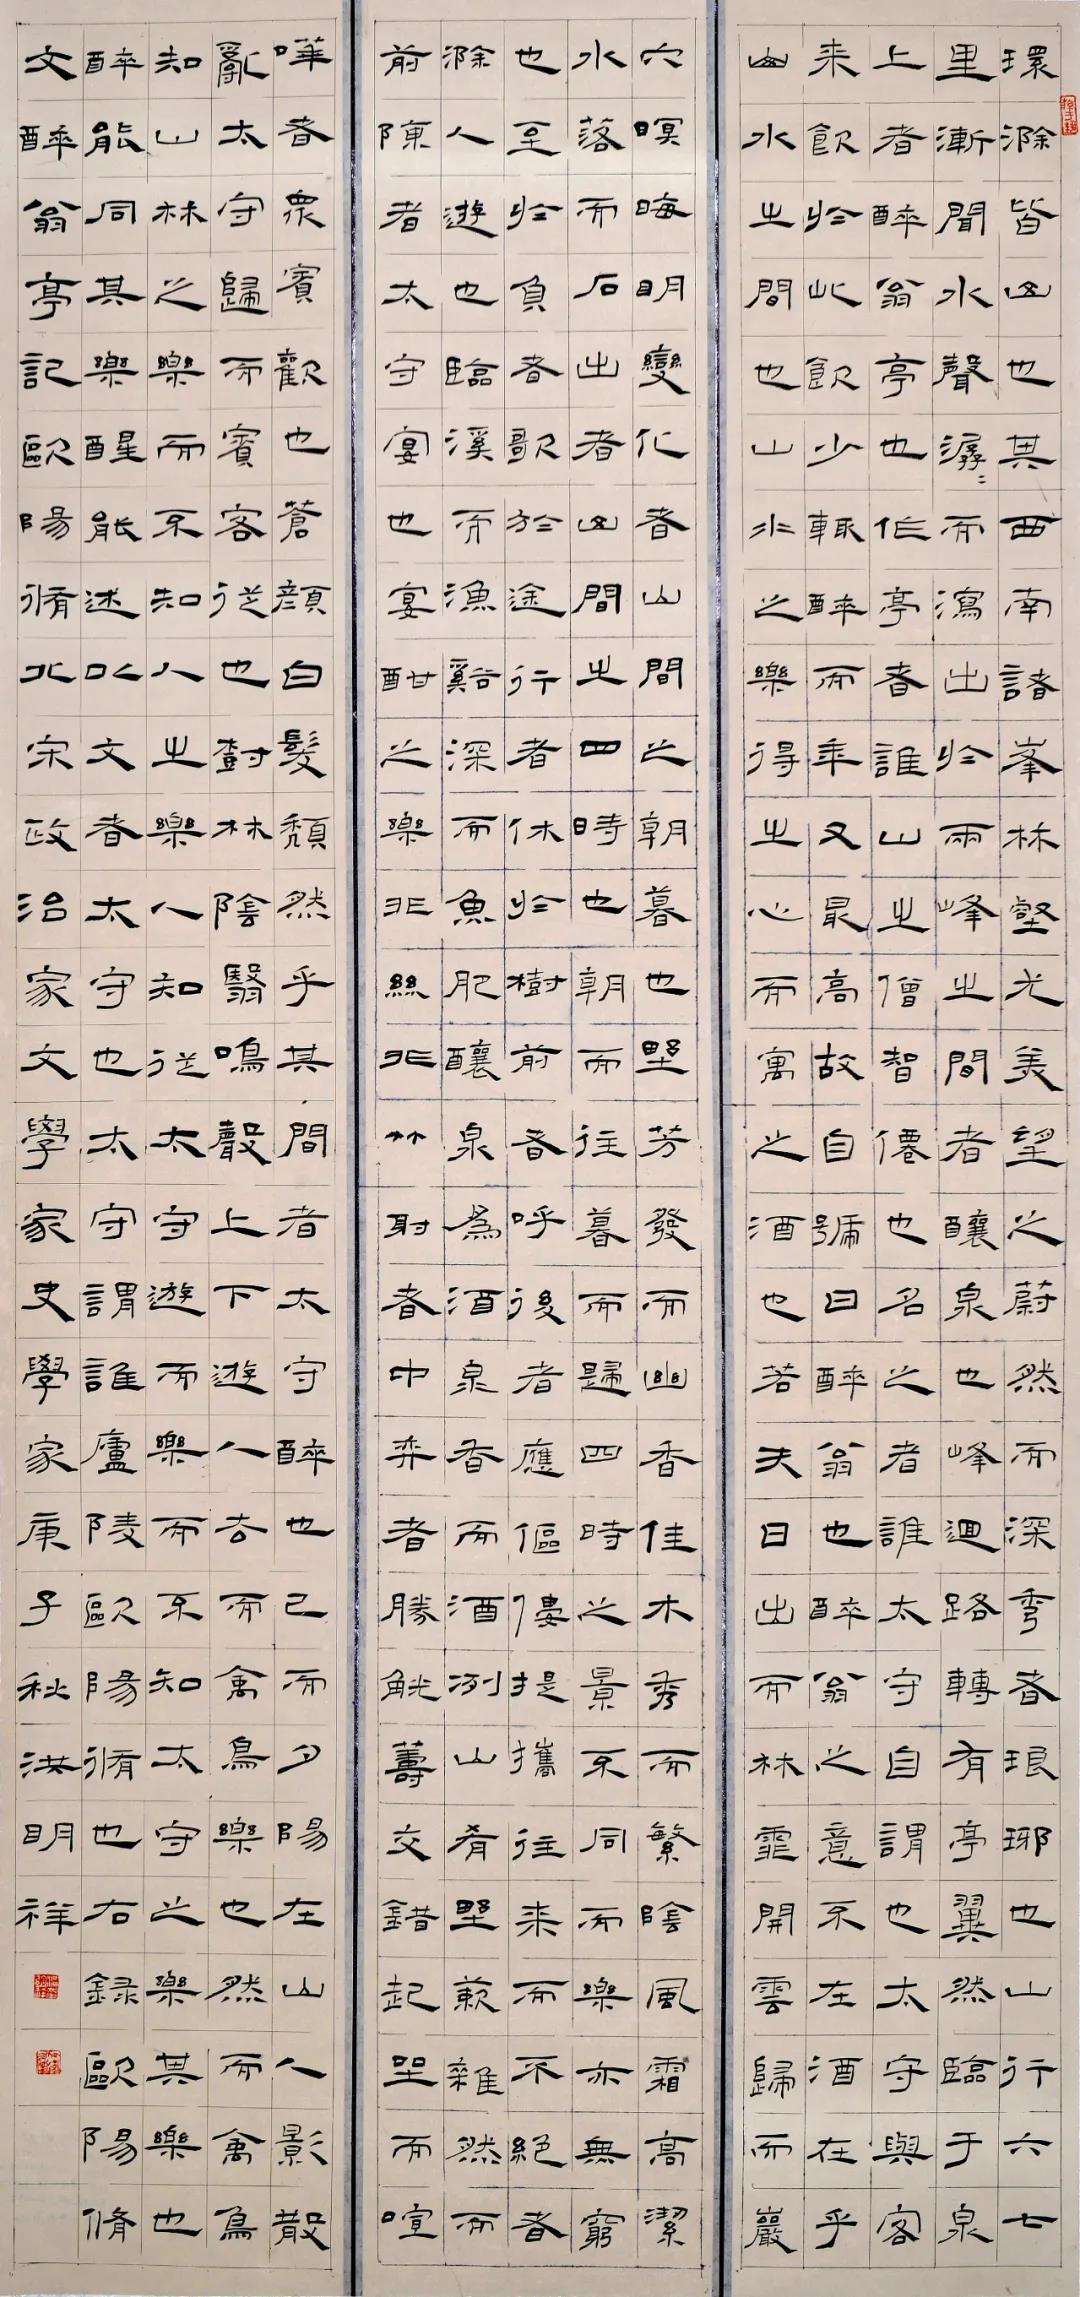 環滁皆山也其西南諸峯林壑尤美望之蔚然而深秀者琅琊也山行六七
里漸聞水聲潺〻而瀉出於兩峰之間者釀泉也峰迴路轉有亭翼然臨于泉
上者醉翁亭也作亭者誰山之僧智僊也名之者誰太守自謂也太守與客
来飲於此飲少輒醉而年又最高故自號曰醉翁也醉翁之意不在酒在乎
山水之間也山水之樂得之心而寓之酒也若夫日出而林霏開雲歸而巖
穴暝晦明變化者山間之朝暮也野芳發而幽香佳木秀而繁陰風霜高潔
水落而石出者山間之四時也朝而往暮而歸四時之景不同而樂亦無窮
也至於負者歌於途行者休於樹前者呼後者應傴僂提攜往来而不絶者
滁人遊也臨溪而漁谿深而魚肥釀泉為酒泉香而酒冽山肴野蔌雜然而
前陳者太守宴也宴酣之樂非絲非竹射者中弈者勝觥籌交錯起坐而喧
嘩者眾賓歡也蒼顏白髮頹然乎其間者太守醉也已而夕陽在山人影散
亂太守歸而賓客從也樹林陰翳鳴聲上下遊人去而禽鳥樂也然而禽鳥
知山林之樂而不知人之樂人知從太守遊而樂而不知太守之樂其樂也
醉能同其樂醒能述以文者太守也太守謂誰廬陵歐陽脩也右録歐陽脩
文醉翁亭記歐陽脩北宋政治家文學家史學家庚子秋洪明祥